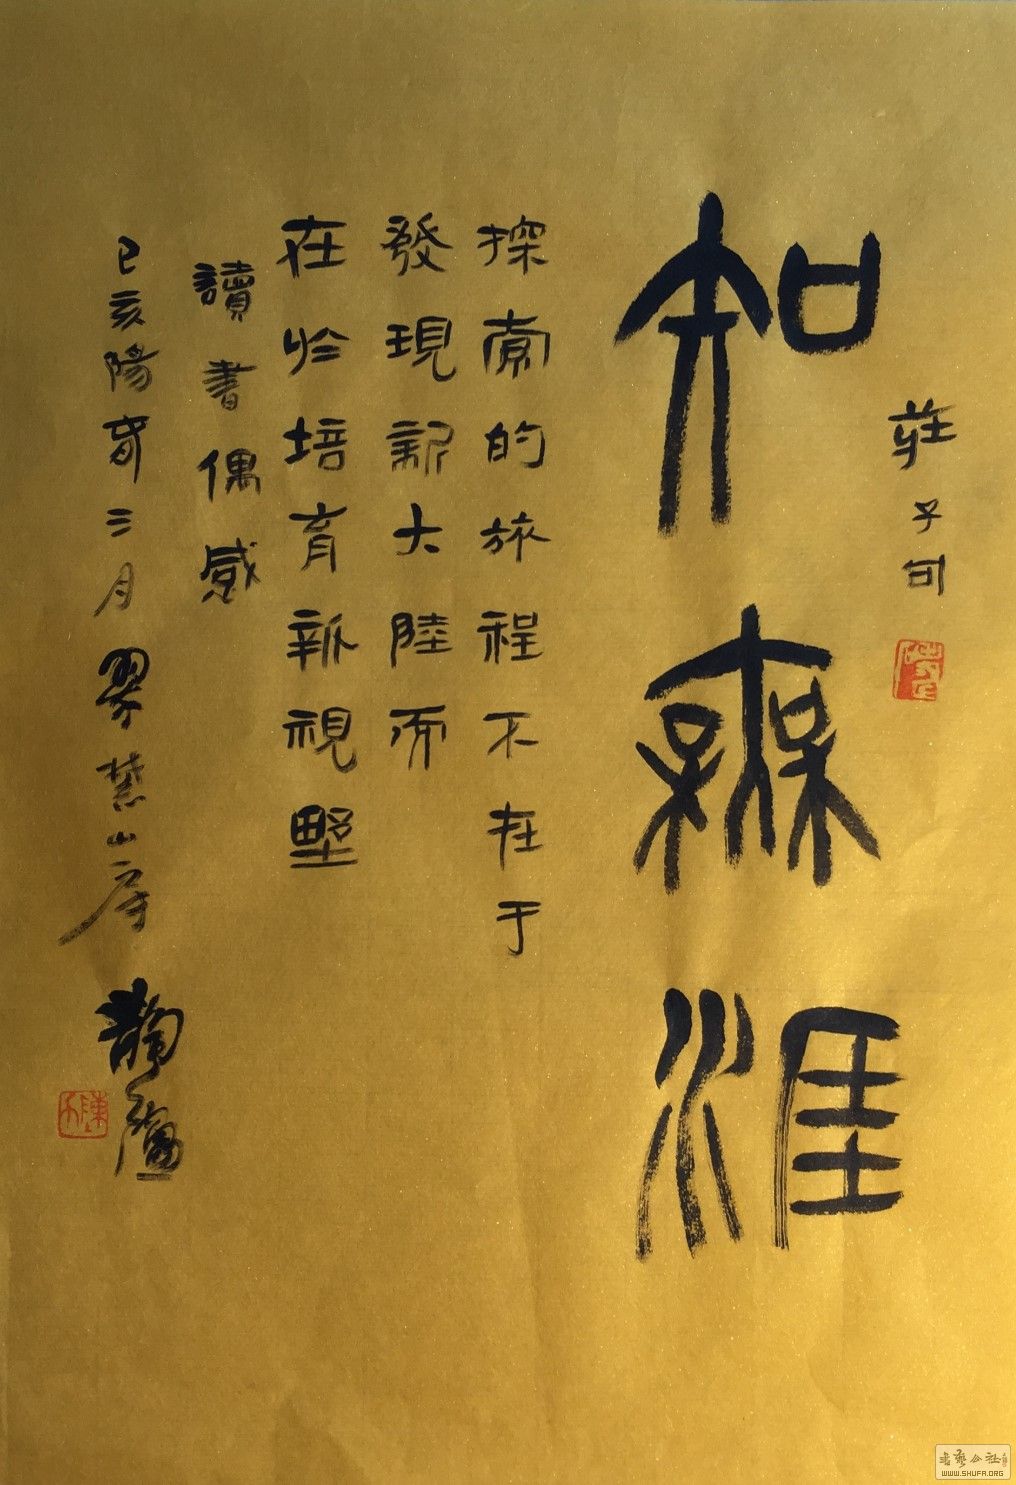 莊子句
知無涯
探索的旅程不在于
發現新大陸而
在於培育新視野
讀書偶感
己亥陽春三月 山房
靜
書藝公社
WWW.SHUFA.ORG